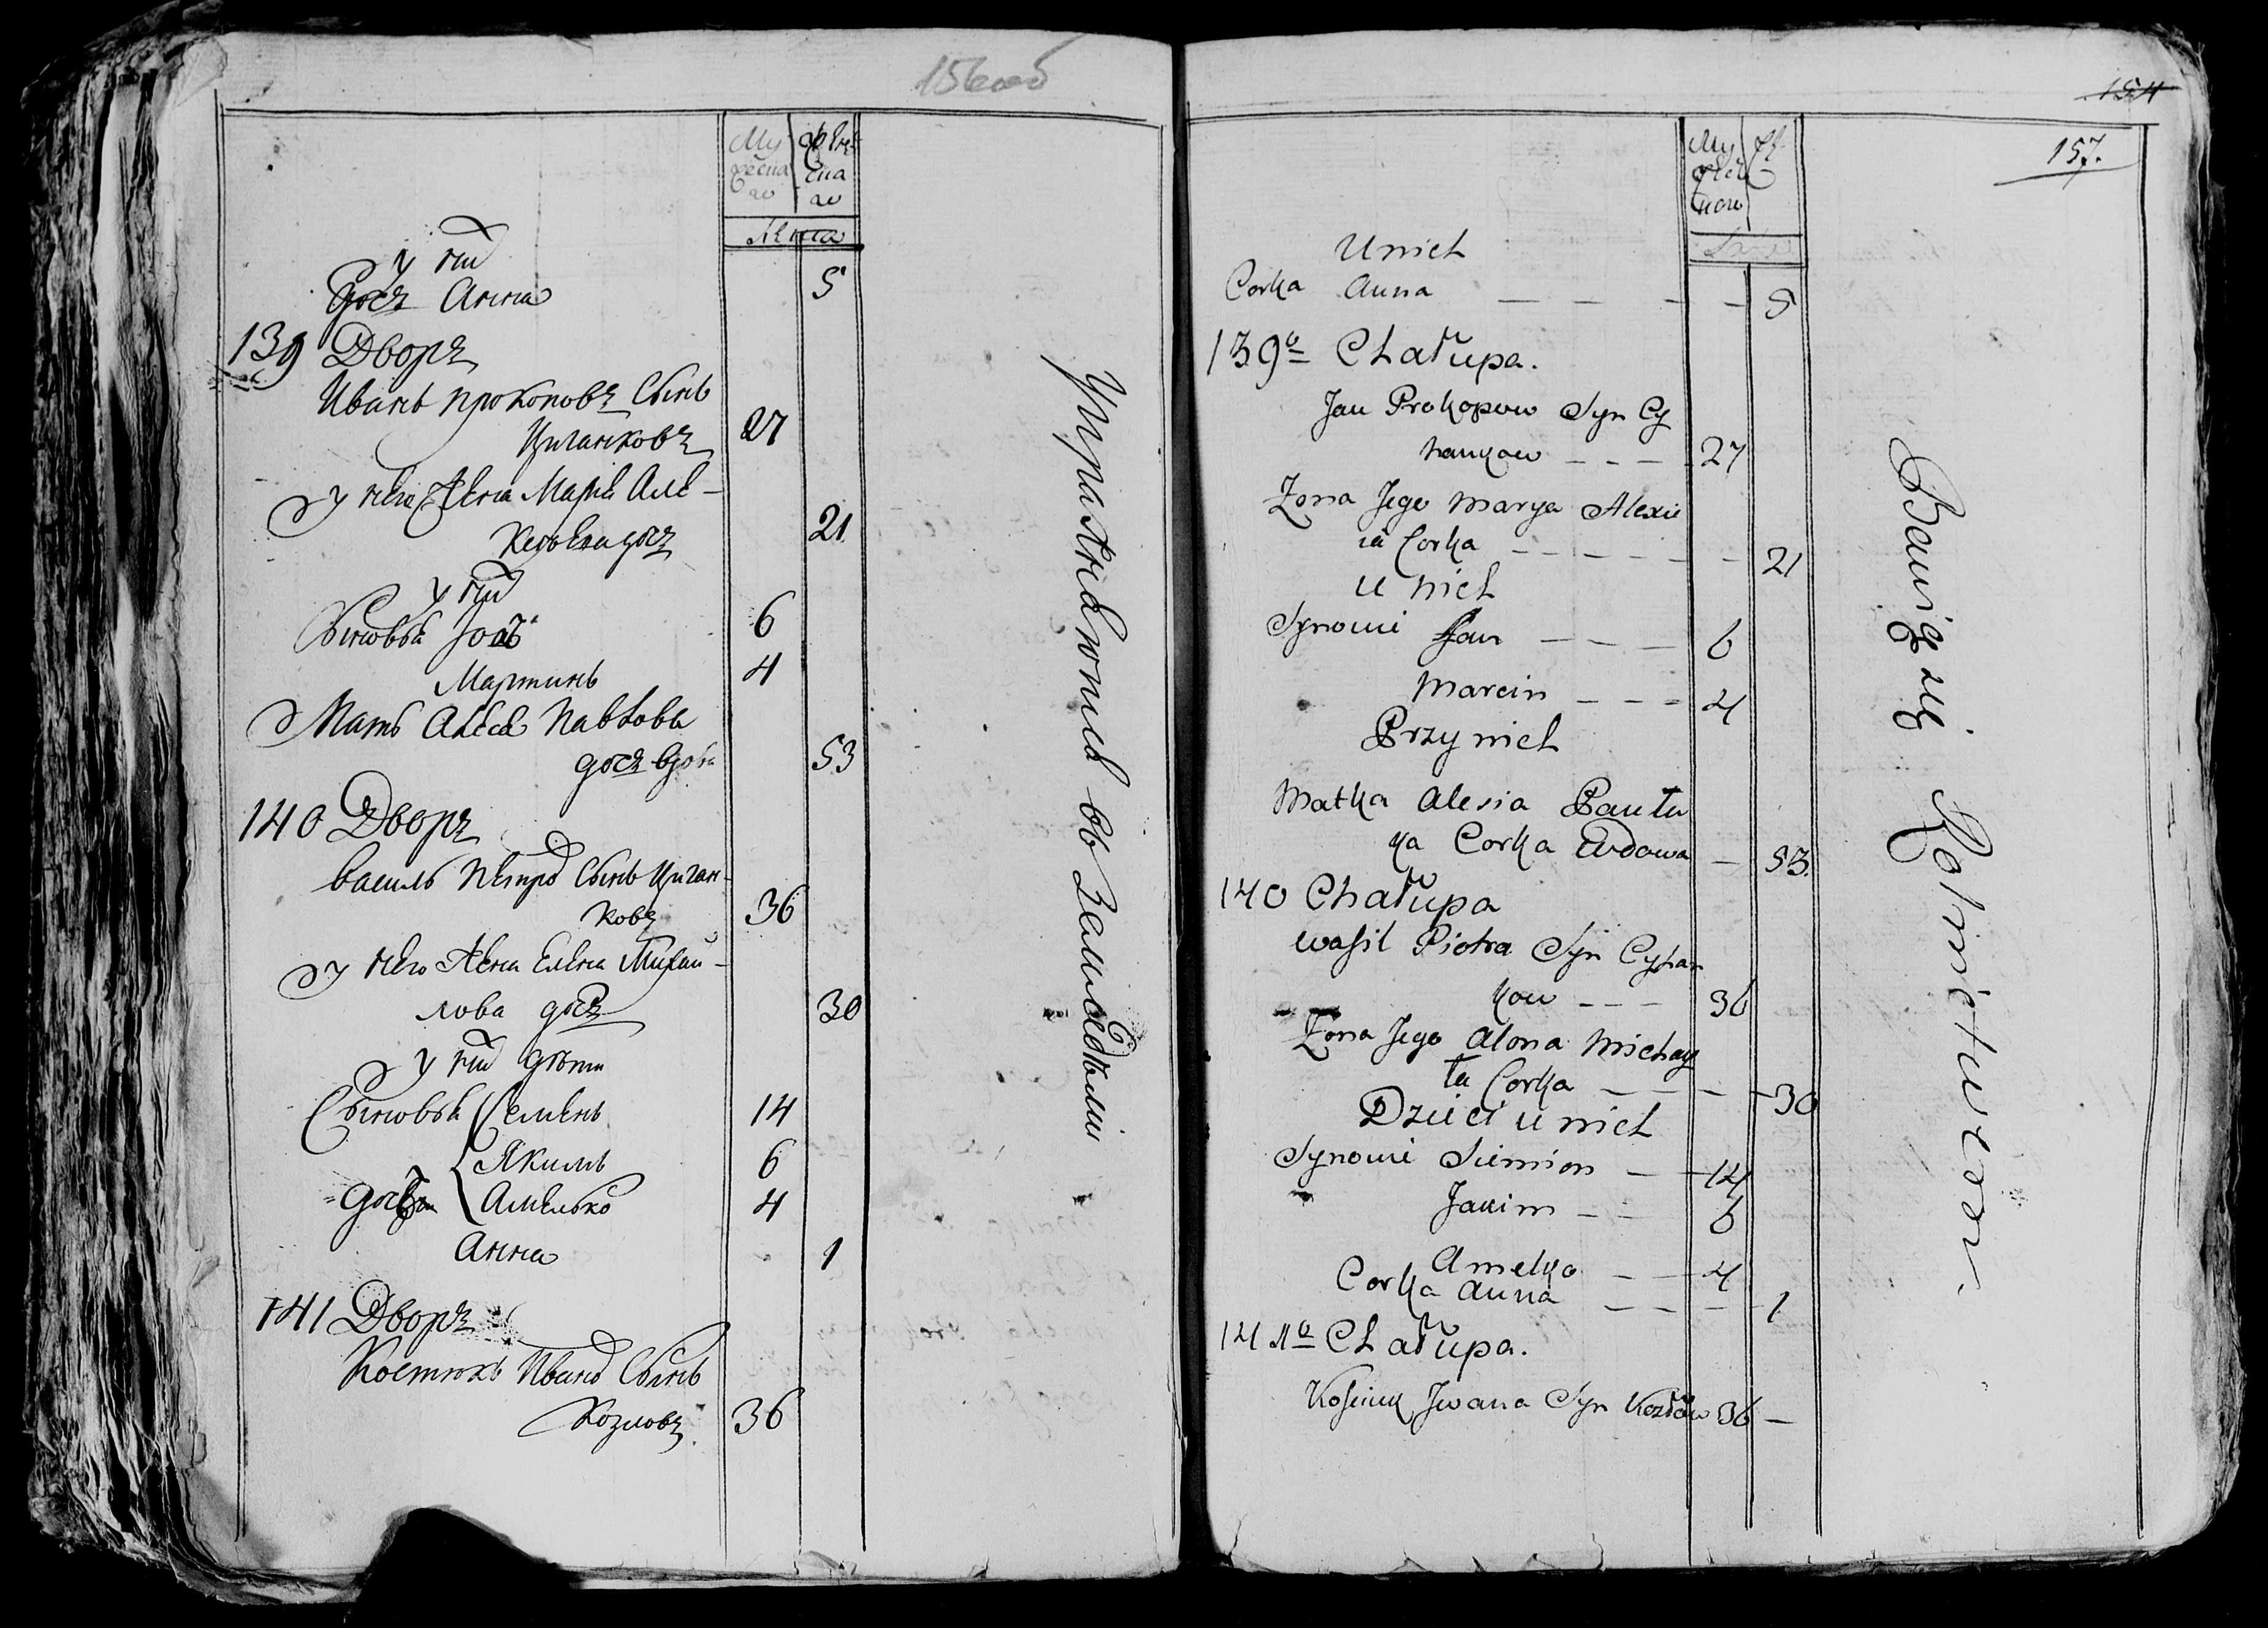 156об
Му
жеска
го
Женс
ска
го
Лета
у них
дочь Анна 5
139 Дворъ
Иванъ Прокоповъ Сынъ
Циганковъ 27
у него Жена Маря Але-
21
у них
Сыновья Іоаъ 6
Мартинъ 4
Мать Алеся Павлова
дочь вдова 53
140 Дворъ
Василь Петров Сынъ Циган-
ковъ 36
у него Жена Елена Михай-
лова дочь 30
у них дети
Сыновья Семенъ 14
Якимъ 6
дочь Амелько 4
Анна 1
141 Дворъ
Костюкъ Иванов Сынъ
Козловъ 36
Упражняютися въ Земледелии
154
157.
Му
жес
каго
U nich
Corka Anna — — — — 5
139º Chałupa.
Jan Prokopow Syn Cy
hankow — — — 27
Zona Jego Marya Alexie
ia Corka — — — — — 21
u nich
Synowie Jan — — — 6
Marcin — — — 4
Przy nich
Matka Alesia Pawłu
ka Corka Wdowa — 53.
140 Chałupa
Wasil Piotra Syn Cyhan
kow — — — 36
Zona Jego Alona Michay
ła Corka — — — — 30
Dzieci u nich
Synowie Siemion — — 14
Jakim — — 6
Amelko — — 4
Corka Anna — — — — 1
141º Chałupa.
Kostiuk Iwana Syn Kozłow 36 —
Bawią się Rolnictwem.